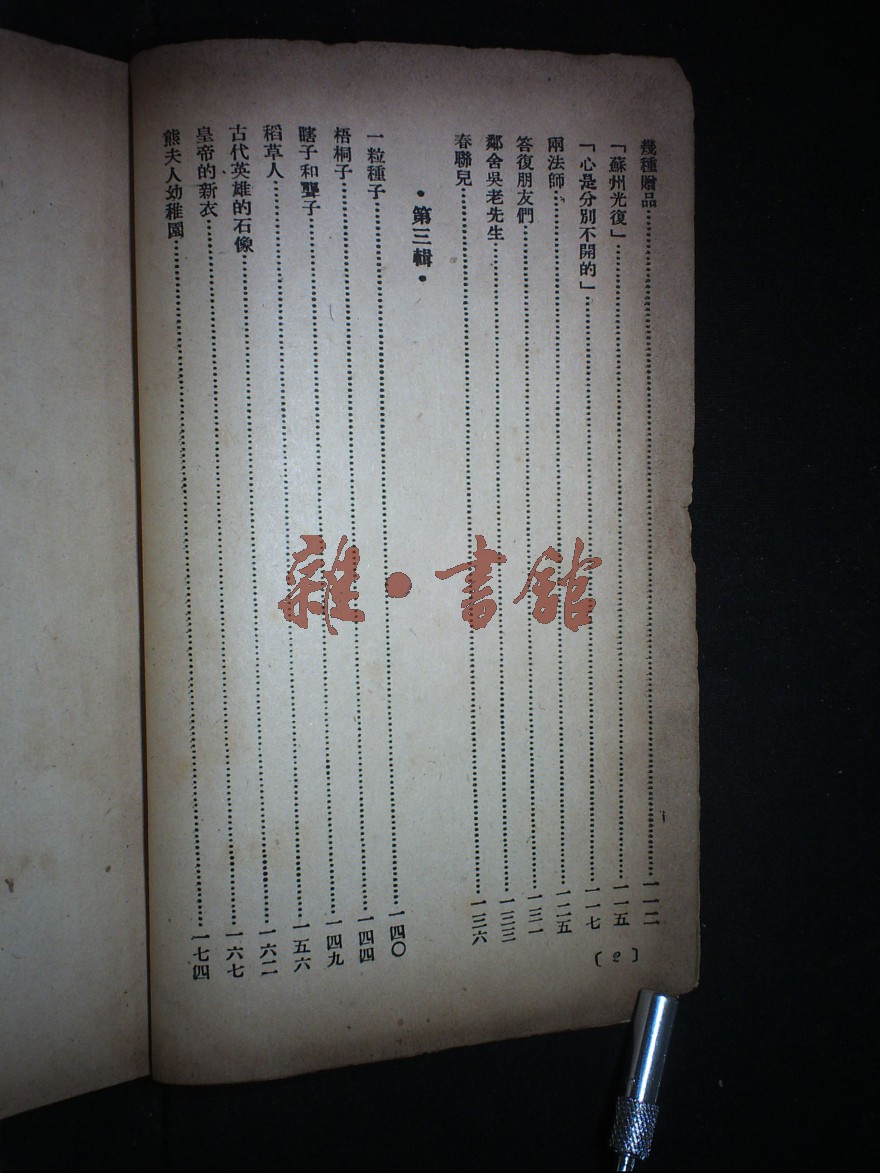 幾種贈品一一二
「蘇州光復」一一五
「心是分別不開的」一一七
兩法師一二五
答復朋友們一三一
鄰舍吳老先生一三三
春聯兒一三六
•第三輯•
一粒種子一四〇
梧桐子一四四
瞎子和聾子一四九
稻草人一五六
古代英雄的石像一六二
皇帝的新衣一六七
熊夫人幼稚園一七四
〔2〕
雜•書館